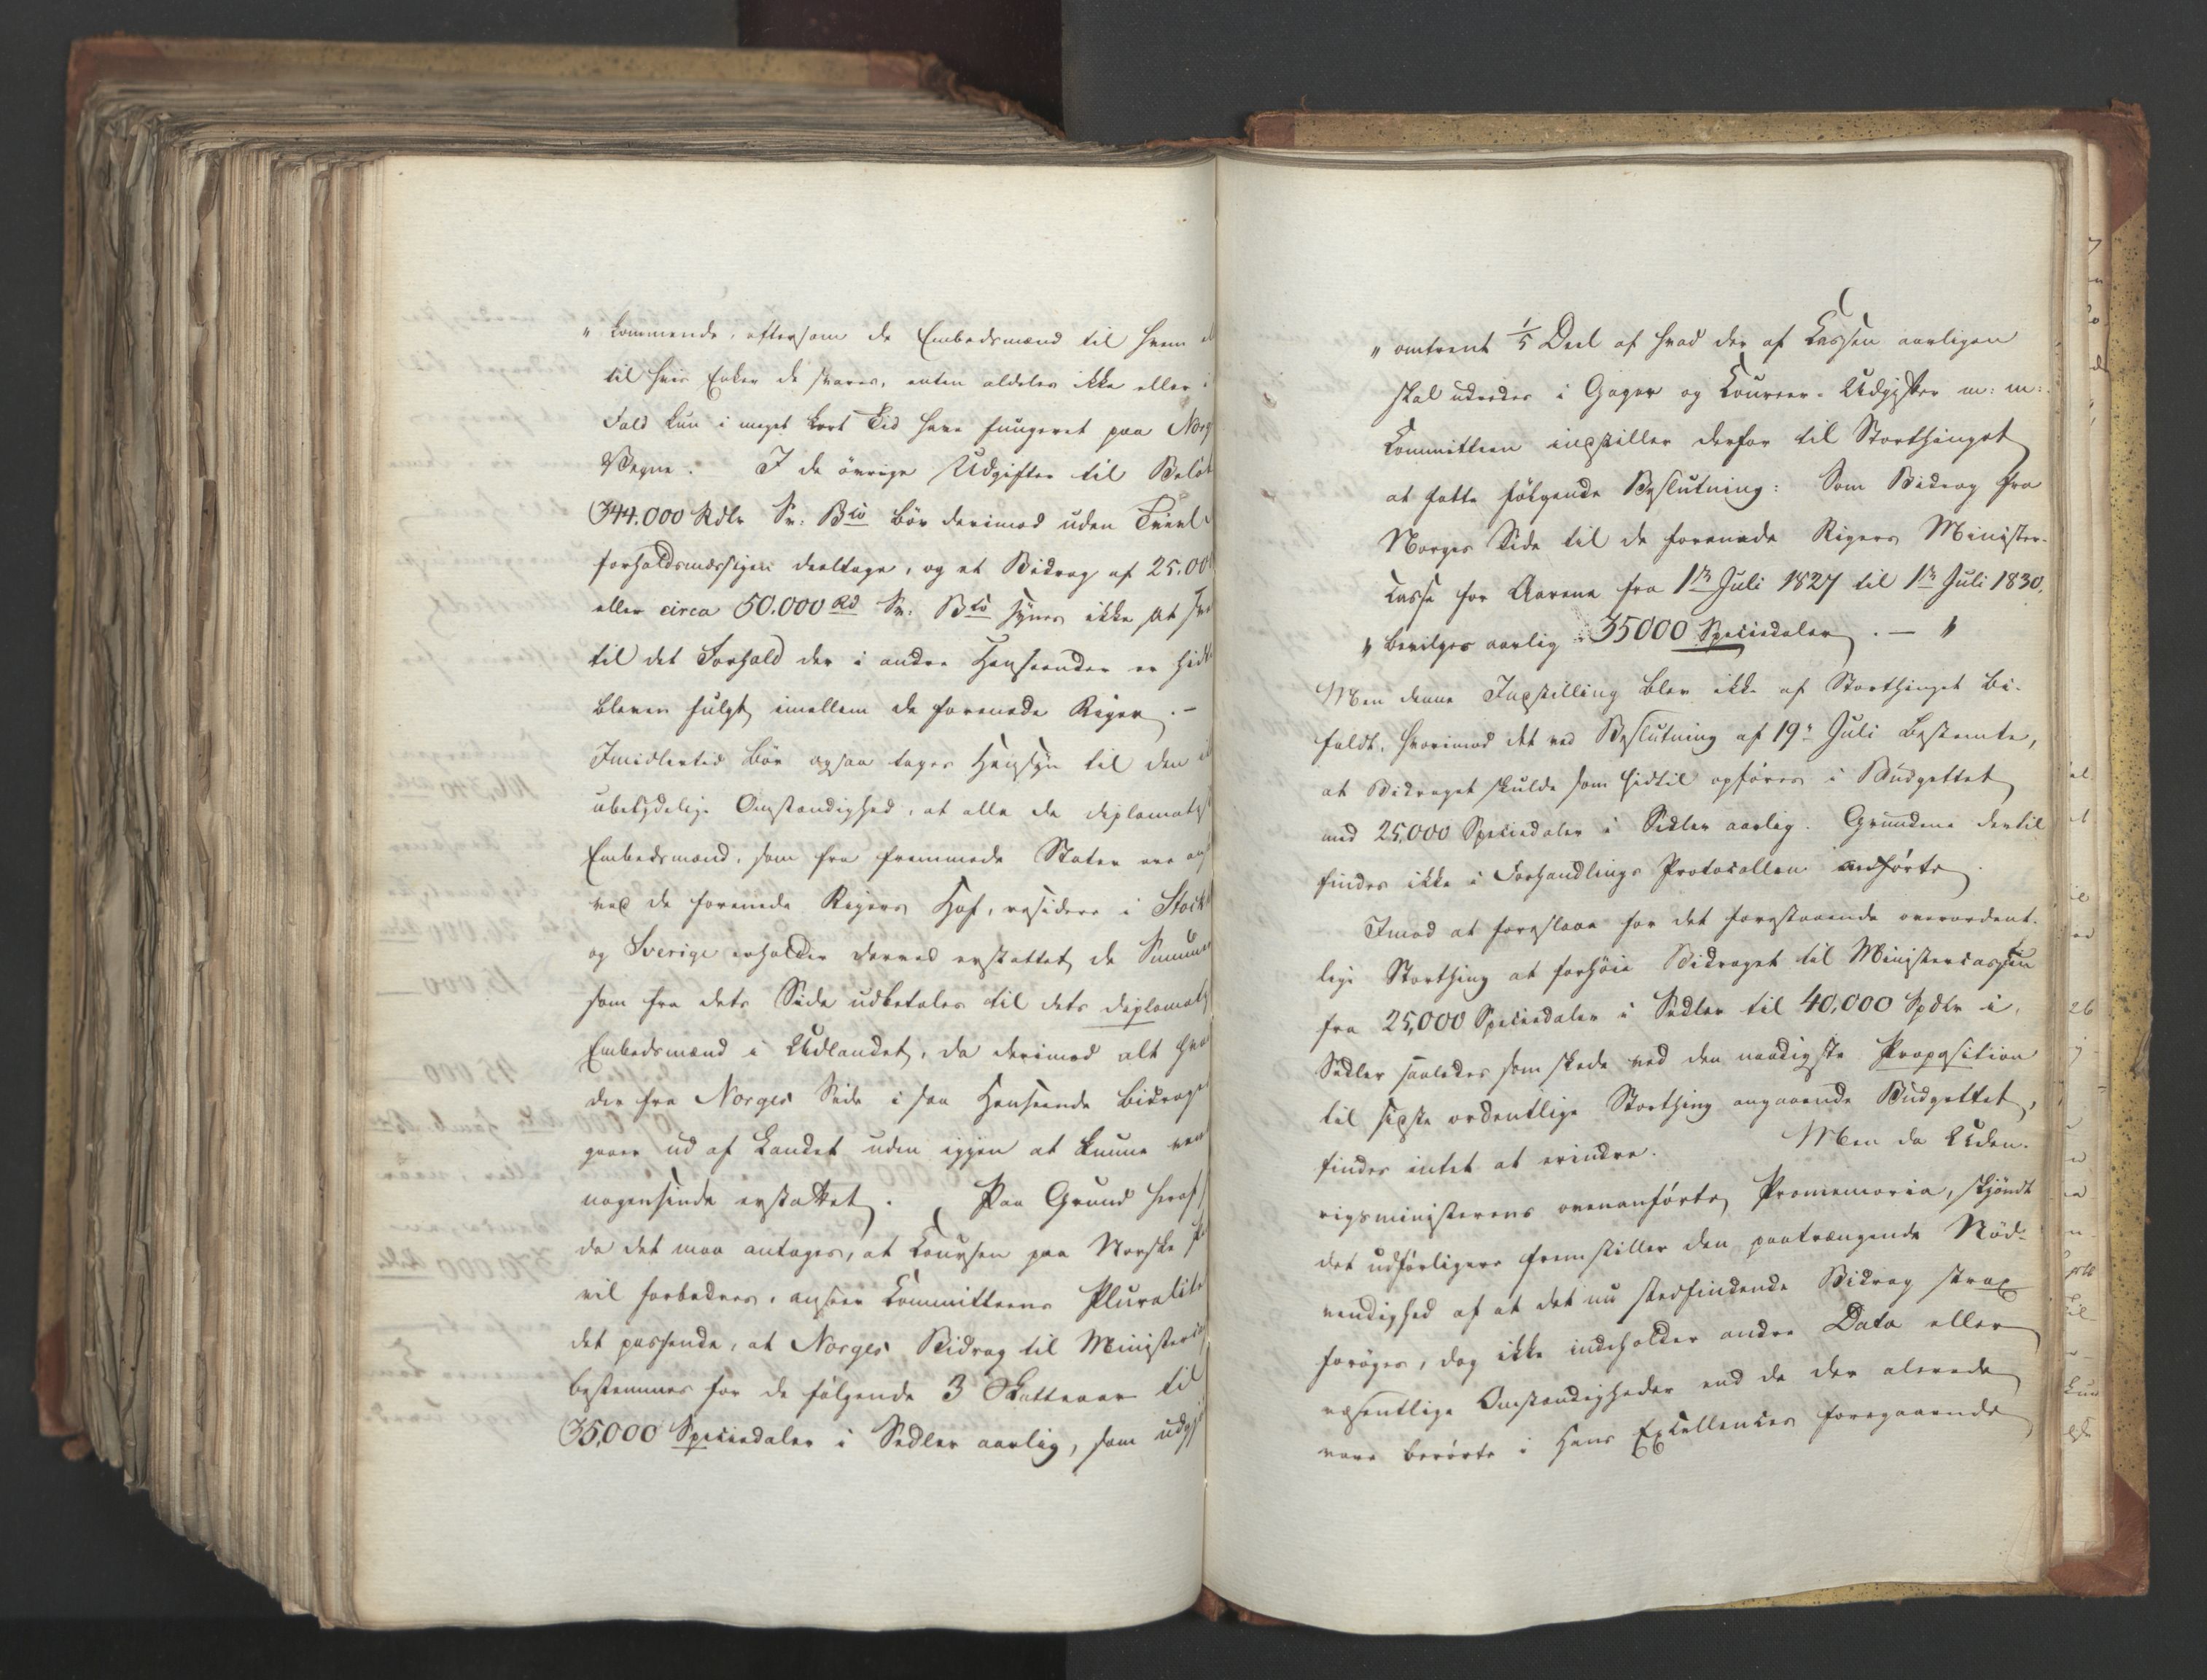 " kommende, eftersom de Embedsmænd til hvem
til hvis Enker de svares, enten aldeles ikke eller i
Fald kun i meget kort Tid have fungeret paa Norg
Vegne. I de övrige Udgifter til Belöb
344.000 Rdlr Sv: Bco bör derimod uden Tvivl
forholdsmæssigen deeltage, og et Bidrag af 25.00
eller circa 50.000 Rd Sv: Bco synes ikke at
til det Forhold der i andre Henseender er hidt
bleven fulgt imellem de forenede Riger. -
Imidlertid bör ogsaa tages Hensyn til den
ubetydelige Omstændighed, at alle de diplomatis
Embedsmænd, som fra fremmede Stater ere
ved de forenede Rigers Hof, residere i Stock
og Sverige erholder derved erstattet de Summer
som fra dets Side udbetales til dets diplomatis
Embedsmænd i Udlandet, da derimod alt hva
der fra Norges Side i saa Henseende bidrage
gaaer ud af Landet uden igjen at kunne
nogensinde erstattet. Paa Grund heraf
da det maa antages, at Coursen paa Norske
vil forbedres, anseer Committeens Pluralite
det passende, at Norges Bidrag til Minister
bestemmes for de følgende 3 Skatteaar til
35,000 Speciedaler i Sedler aarlig, som udgj
" omtrent 1/5 Deel af hvad der af Cassen aarligen
skal udredes i Gager og Coureer-Udgifter m: m:
Committeen indstiller derfor til Storthinget
at fatte følgende Beslutning: Som Bidrag fra
Norges Side til de forenede Rigers Minister-
Casse for Aarene fra 1ste Juli 1827 til 1ste Juli 1830,
" bevilges aarlig 35000 Speciedaler. — "
Men denne Indstilling blev ikke af Storthinget bi-
faldt, hvorimod det ved Beslutning af 19de Juli bestemte,
at Bidraget skulde som hidtil opføres i Budgettet
med 25,000 Speciedaler i Sedler aarlig. Grundene dertil
findes ikke i Forhandlings Protocollen anførte.
Imod at foreslaae for det forestaaende overordent-
lige Storthing at forhöie Bidraget til Ministercassen
fra 25,000 Speciedaler i Sedler til 40,000 Spdlr i
Sedler saaledes som skede ved den naadigste Proposition
til sidste ordentlige Storthing angaaende Budgettet,
findes intet at erindre. Men da Uden-
rigsministerens ovenanførte Promemoria, skjöndt
det udførligere fremstiller den paatrængende Nöd-
vendighed af at det nu stedfindende Bidrag strax
forøges, dog ikke indeholder andre Data eller
væsentlige Omstændigheder end de der alerede
vare berørte i Hans Excellences foregaaende